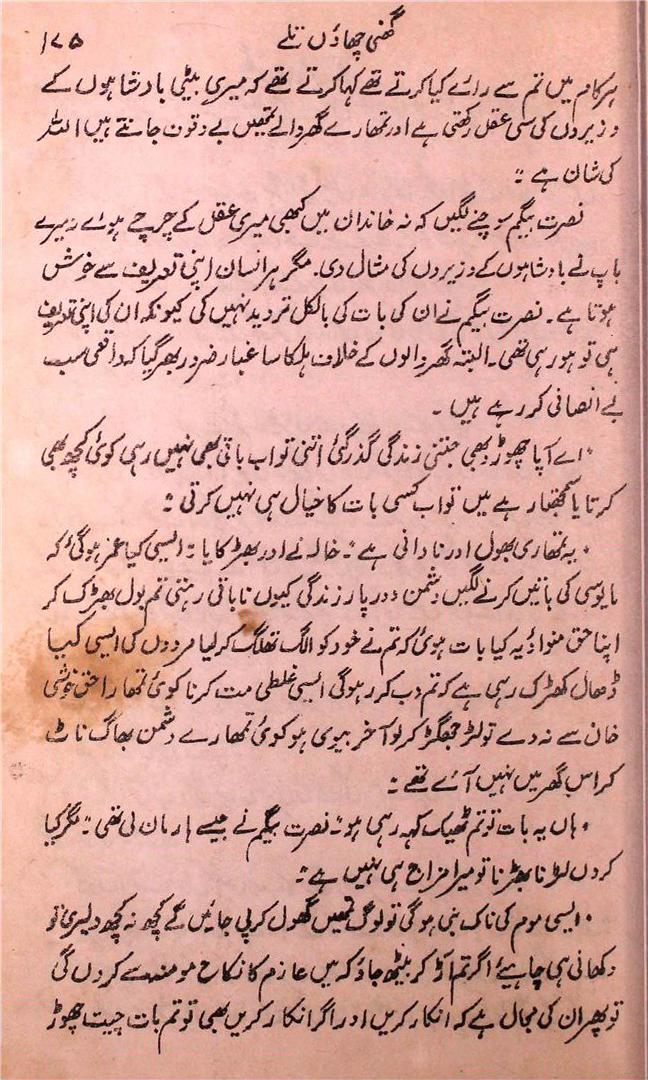 گھنی چھاؤں تلے
۱۷۵
ہر کام میں تم سے رائے کیا کرتے تھے کہا کرتے تھے کہ میری بیٹی بادشاہوں کے
وزیروں کی سی عقل رکھتی ہے اور تمھارے گھر والے تمھیں بے وقوف جانتے ہیں اللہ
کی شان ہے :
نصرت بیگم سوچنے لگیں کہ نہ خاندان میں کبھی میری عقل کے چرچے ہوئے نہ میرے
باپ نے بادشاہوں کے وزیروں کی مثال دی. مگر ہر انسان اپنی تعریف سے خوش
ہوتا ہے۔ نصرت بیگم نے ان کی بات کی بالکل تردید نہیں کی کیونکہ ان کی اپنی تعریف
ہی تو ہو رہی تھی۔ البتہ گھر والوں کے خلاف ہلکا سا غبار ضرور بھر گیا کہ واقعی سب
بے انصافی کر رہے ہیں ۔
"اے آپا چھوڑو بھی جتنی زندگی گذر گئی اتنی تو اب باقی بھی نہیں رہی کوئی کچھ بھی
کرتا یا سمجھتا رہے میں تو اب کسی بات کا خیال ہی نہیں کرتی :
"یہ تمھاری بھول اور نادانی ہے" خالہ نے اور بھڑکایا "ایسی کیا عمر ہو گئی کہ
مایوسی کی باتیں کرنے لگیں دشمن دور پار زندگی کیوں نا باقی رہتی تم بول بھڑک کر
اپنا حق منواؤ یہ کیا بات ہوئی کہ تم نے خود کو الگ تھلگ کر لیا مردوں کی ایسی کیا
ڈھال کھڑک رہی ہے کہ تم دب کر رہو گی ایسی غلطی مت کرنا کوئی تمھارا حق خوشی
خان سے نہ دے تو لڑ جھگڑ کر لو آخر بیوی ہو کوئی تمھارے دشمن بھاگ ناٹ
کر اس گھر میں نہیں آئے تھے :
"ہاں یہ بات تو تم ٹھیک کہہ رہی ہو" نصرت بیگم نے جیسے ہار مان لی تھی "مگر کیا
کروں لڑنا بھڑنا تو میرا مزاج ہی نہیں ہے"
"ایسی موم کی ناک بنی ہو گی تو لوگ تمھیں گھول کر پی جائیں گے کچھ نہ کچھ دلیری تو
دکھانی ہی چاہیئے اگر تم اڑ کر بیٹھ جاؤ کہ میں عازم کا نکاح مومنہ سے کروں گی
تو پھر ان کی مجال ہے کہ انکار کریں اور اگر انکار کریں بھی تو تم بات چیت چھوڑ